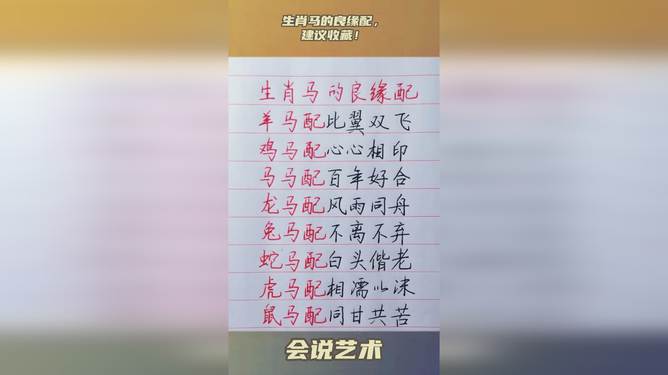 生肖马的良缘配，
建议收藏！
生肖马的良缘配
羊马配比翼双飞
鸡马配心心相印
马马配百年好合
龙马配风雨同舟
兔马配不离不弃
蛇马配白头偕老
虎马配相濡以沫
鼠马配同甘共苦
会说艺术